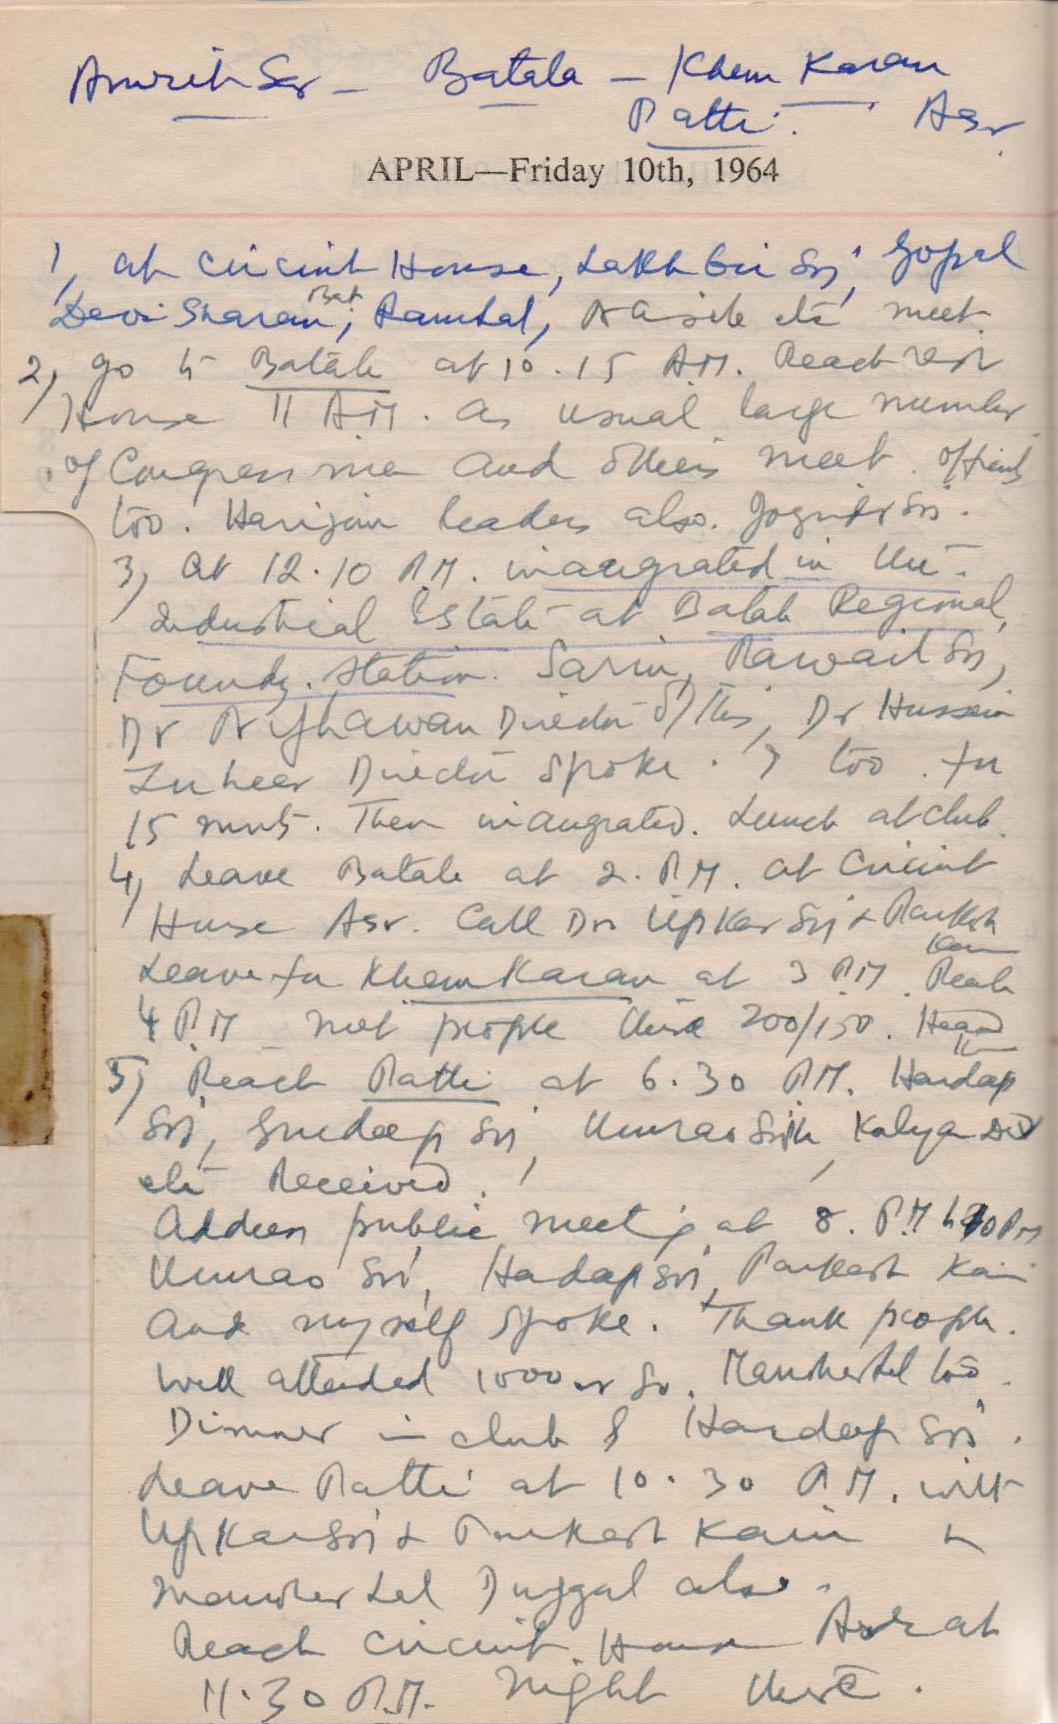 Amrit Sr - Batala - Khem Karan
Patti. Asr.
APRIL—Friday 10th, 1964
1, at Circuit House, Lakhbir Sn, Gopal
Devi Sharan, Ramlal, etc meet.
2, go to Batala at 10.15 A.M. Reach rest
House 11 A.M. As usual large number
of Congress men and others meet. Officials
too. Harijan leaders also. Joginder Sn.
3, at 12.10 P.M. inaugrated in the
Industrial Estate at Batala Regional
Foundry Station. Sarin, Rawail Sn,
Dr Director of this, Dr Hussein
Zuheer Director spoke. I too for
15 mnts. Then inaugrated. Lunch at club.
4, Leave Batala at 2. P.M. at Circuit
House Asr. Call Dr Upkar Sn + Parkash
Kaur
Leave for Khem Karan at 3 P.M. Reach
4 P.M met people there 200/150. Heard
them
5, Reach Patti at 6.30 P.M. Hardeep
Sn, Gurdeep Sn, Umrao Singh, Kalyan
etc Received.
Address public meeting at 8. P.M to 10 Pm
Umrao Sn, Hardeep Sn, Parkash Kaur
and myself spoke. + Thank people.
Well attended 1000 or so. Manoher Lal too.
Dinner in club of Hardeep Sn.
Leave Patti at 10.30 P.M. with
Upkar Sn + Parkash Kaur
Manoher Lal Duggal also.
Reach circuit House Asr at
11.30 P.M. Night there.